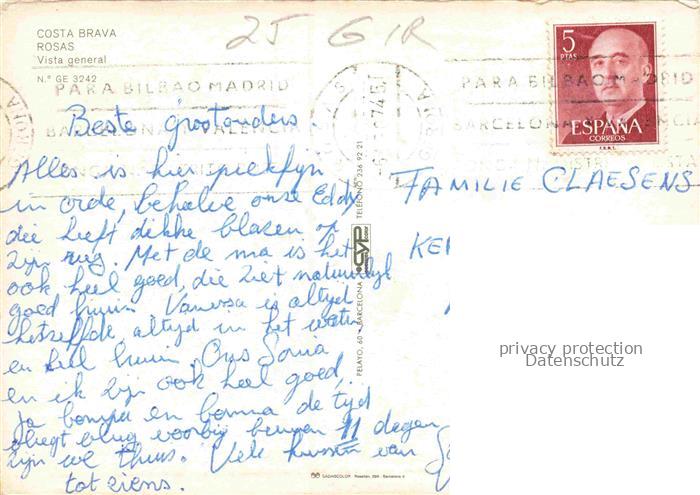 COSTA BRAVA
ROSAS
Vista general
N.º GE 3242
25 GIR
PARA BILBAO MADRID
BARCELONA VALENCIA
PARA BILBAO MADRID
BARCELONA
5
PTAS
ESPAÑA
CORREOS
Beste grootouders.
Alles is hier piekfijn
in orde, behalve onze Eddy
die heeft dikke blazen op
zijn rug. Met de ma is het
ook heel goed, die ziet natuurlijk
goed bruin. Vanessa is altijd
hetzelfde, altijd in het water
en heel bruin. Ons Sonia
en ik zijn ook heel goed,
Ja bompa en bonma de tijd
vliegt vlug voorbij binnen 11 dagen
zijn we thuis. Vele kussen van
tot ziens.
FAMILIE CLAESENS
KE
PELAYO, 60 - BARCELONA
CYP
TELÉFONO 236 92 21
SADAGCOLOR
privacy protection
Datenschutz